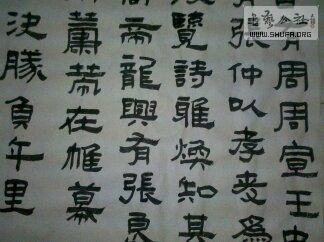 有周周宣王中
張仲以孝友為
覽詩雅煥知其
帝龍興有張良
籌策在帷幕
決勝負千里
書藝公社
WWW.SHUFA.ORG